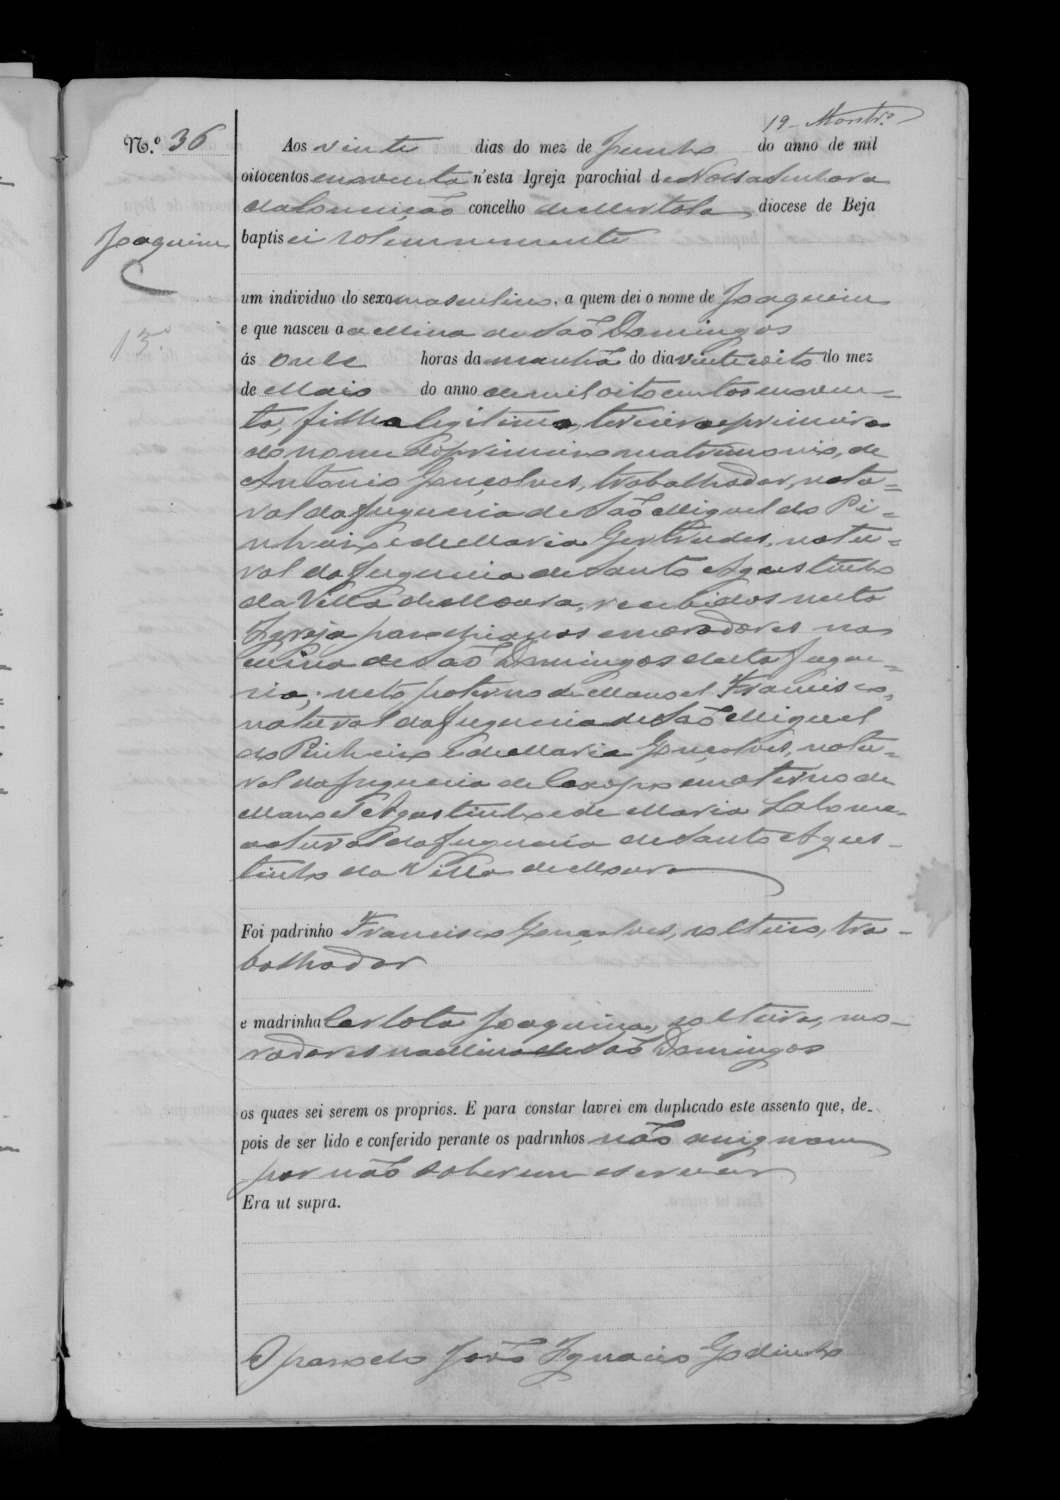 19
N.º 36
Aos vinte dias do mez de Junho do anno de mil
oitocentos enoventa n'esta Igreja parochial de Nossa Senhora
da Conceição concelho de Mertola, diocese de Beja
Joaquim
baptisei solemnemente
um individuo do sexo masculino, a quem dei o nome de Joaquim
e que nasceu a a Mina de São Domingos
13.
ás onze horas da manhã do dia vinte e oito do mez
de Maio do anno de mil oito centos e noven=
ta, filho legitimo, terceiro e primeiro
do nome do primeiro matrimonio, de
Antonio Gonçalves, trabalhador, natu=
ral da freguezia de São Miguel do Pi=
nheiro e de Maria Gertrudes, natu=
ral da freguezia de Santo Agostinho
da Villa de Moura, recebidos nesta
Igreja parochianos e moradores na
Mina de São Domingos desta fregue=
zia; neto paterno de Manoel Francisco,
natural da freguezia de São Miguel
do Pinheiro e de Maria Gonçalves, natu=
ral da freguezia de e materno de
Manoel Agostinho e de Maria Salome,
natural da freguezia de Santo Agos-
tinho da Villa de Moura
Foi padrinho Francisco Gonçalves, solteiro, tra-
balhador
e madrinha Carlota Joaquina, solteira, mo-
radores na Mina de São Domingos
os quaes sei serem os proprios. E para constar lavrei em duplicado este assento que, de-
pois de ser lido e conferido perante os padrinhos não asignam
por não saberem escrever
Era ut supra.
O parocho João Ignacio Godinho